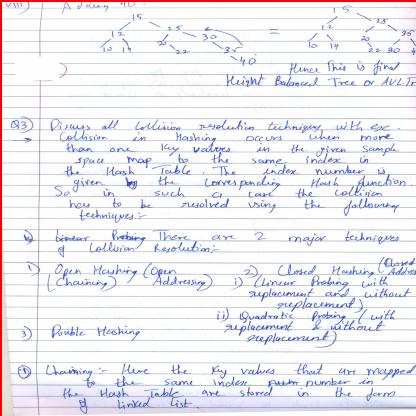 viii) Adding 40
15
12 25
10 14 20 30
22 35
40
=
15
12 25
10 14 20 35
22 30
Hence This is final
Height Balanced Tree or AVL Tr
Q3) Discuss all Collision resolution techniques with ex.
Collision in Hashing occurs when more
than one key values in the given sample
space map to the same index in
the Hash Table. The index number is
given by the corresponding Hash function
So in such a case the collision
has to be resolved using the following
techniques:-
Linear Probing There are 2 major techniques
of Collision Resolution:-
1) Open Hashing (Open Addressing) (Chaining)
2) Closed Hashing (Closed Addres
i) (Linear Probing (with
replacement and without
replacement)
ii) Quadratic Probing (with
replacement & without
replacement)
3) Double Hashing
Chaining:- Here the key values that are mapped
to the same index number in
the Hash Table are stored in the form
of linked list.